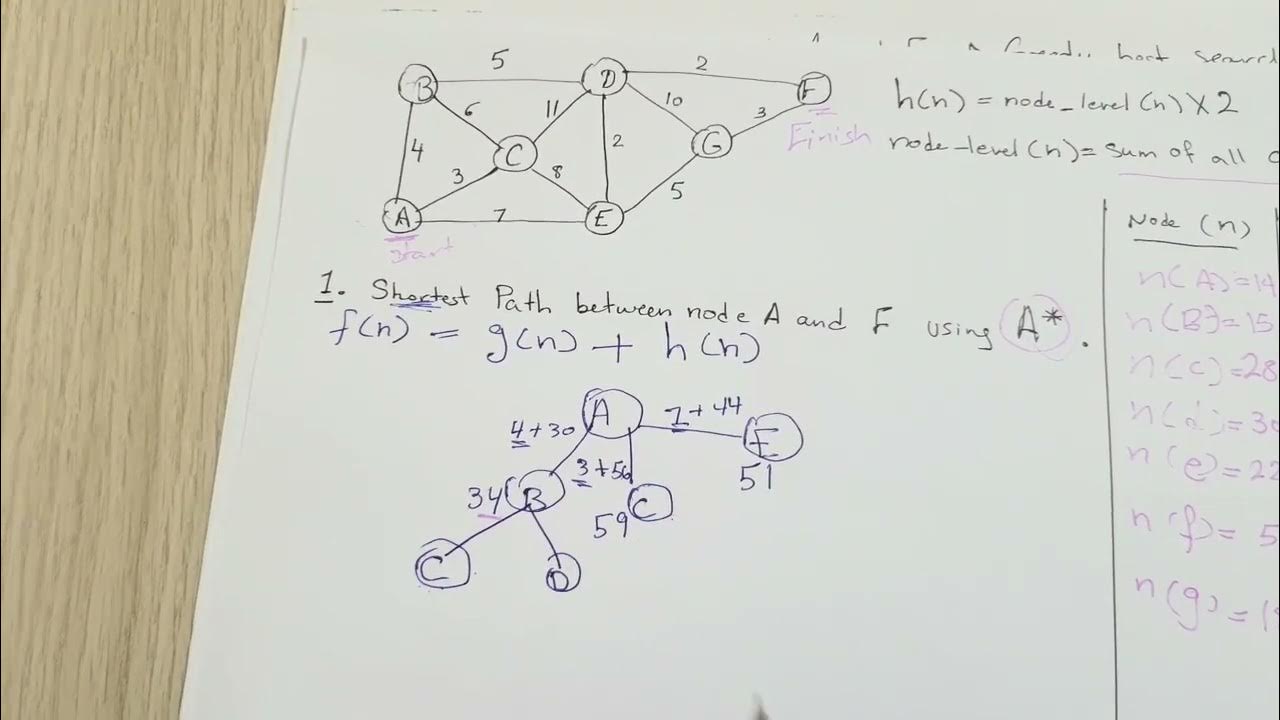 h(n) = node_level(n) X 2
node_level(n) = sum of all
B 5 D 2 F
6 11 10 3
4 C 2 G
3 8 5
A 7 E
Start
Finish
Node (n)
n(A)=14
n(B)=15
n(c)=28
n(d)=30
n(e)=22
n(f)= 5
n(g)=
1. Shortest Path between node A and F using A*.
f(n) = g(n) + h(n)
A
4+30 3+56 7+44
34 B 59 C E 51
C D